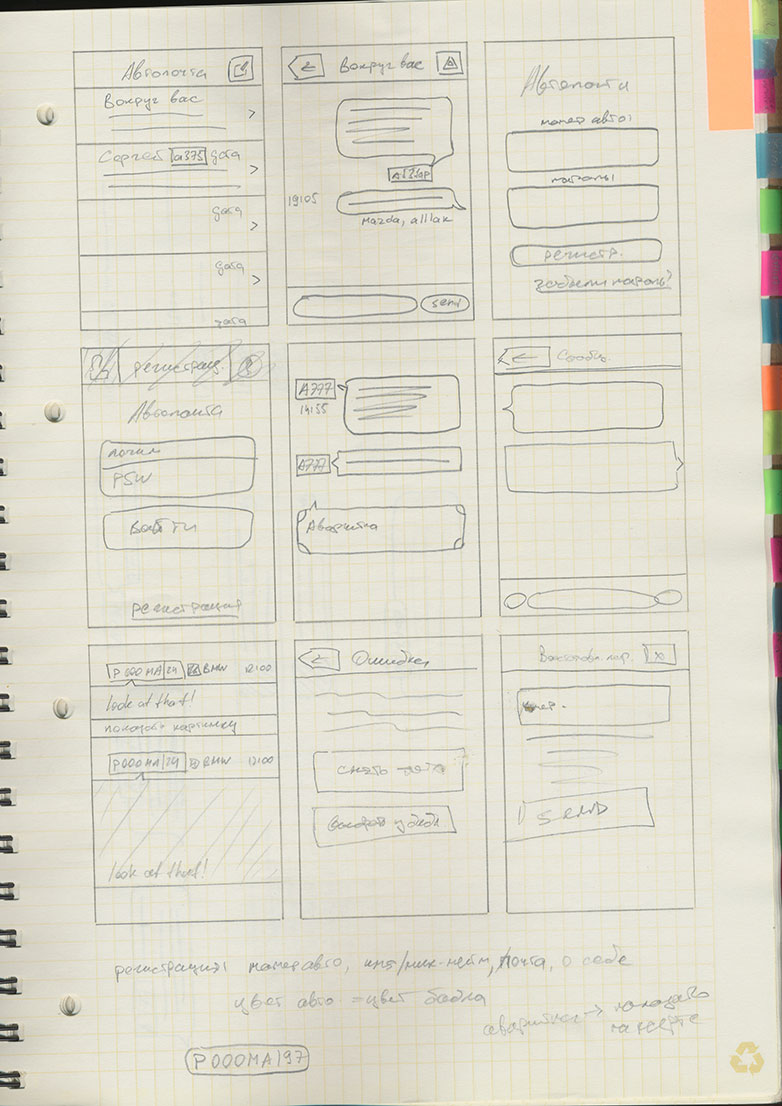 Автопочта
Вокруг вас
Сергей а375 дата
дата
дата
дата
Вокруг вас
19:05
mazda, alllak
send
Автопочта
номер авто:
пароль:
регистр.
забыли пароль?
регистрац.
Автопочта
логин
PSW
Войти
регистрация
A777
14:55
A777
Аварийка
Сообщ.
P000MA|24 BMW 12:00
look at that!
показать картинку
P000MA|24 BMW 12:00
look at that!
Ошибка
Восстанови пар. x
номер.
SEND
регистрация: номер авто, имя/ник-нейм, почта, о себе
цвет авто = цвет бабла
аварийка → показать
на карте
P000MA|97